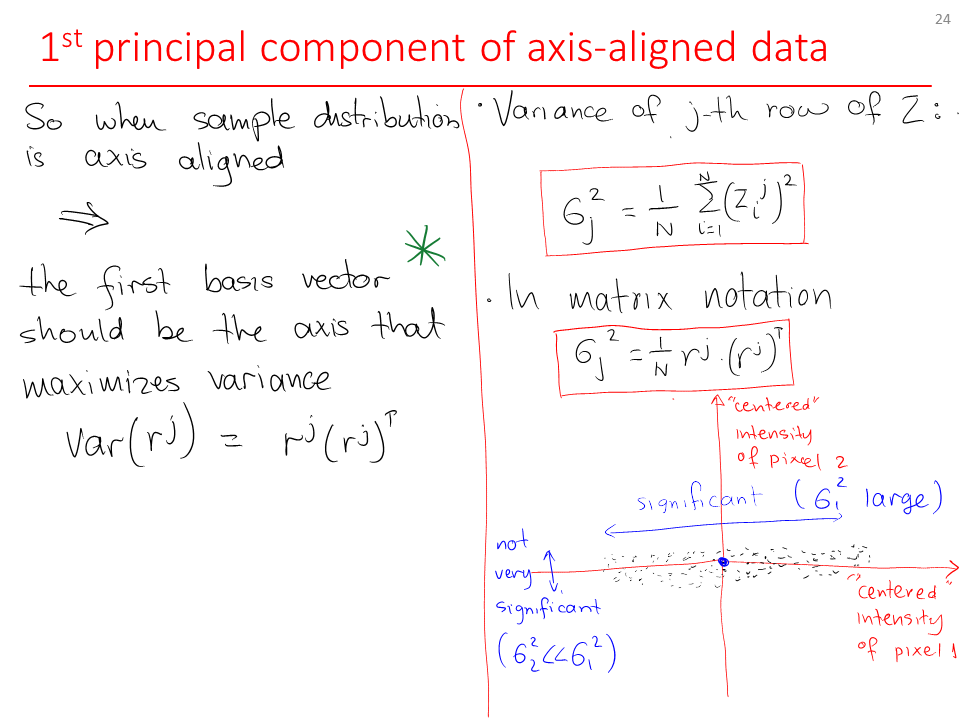 24
1st principal component of axis-aligned data
So when sample distribution
is axis aligned
⇒
*
the first basis vector
should be the axis that
maximizes variance
Var(r^j) = r^j (r^j)^T
· Variance of j-th row of Z:
σ_j^2 = 1/N Σ_{i=1}^N (z_i^j)^2
· In matrix notation
σ_j^2 = 1/N r^j · (r^j)^T
"centered"
intensity
of pixel 2
significant (σ_1^2 large)
not
very
significant
(σ_2^2 << σ_1^2)
"centered"
intensity
of pixel 1